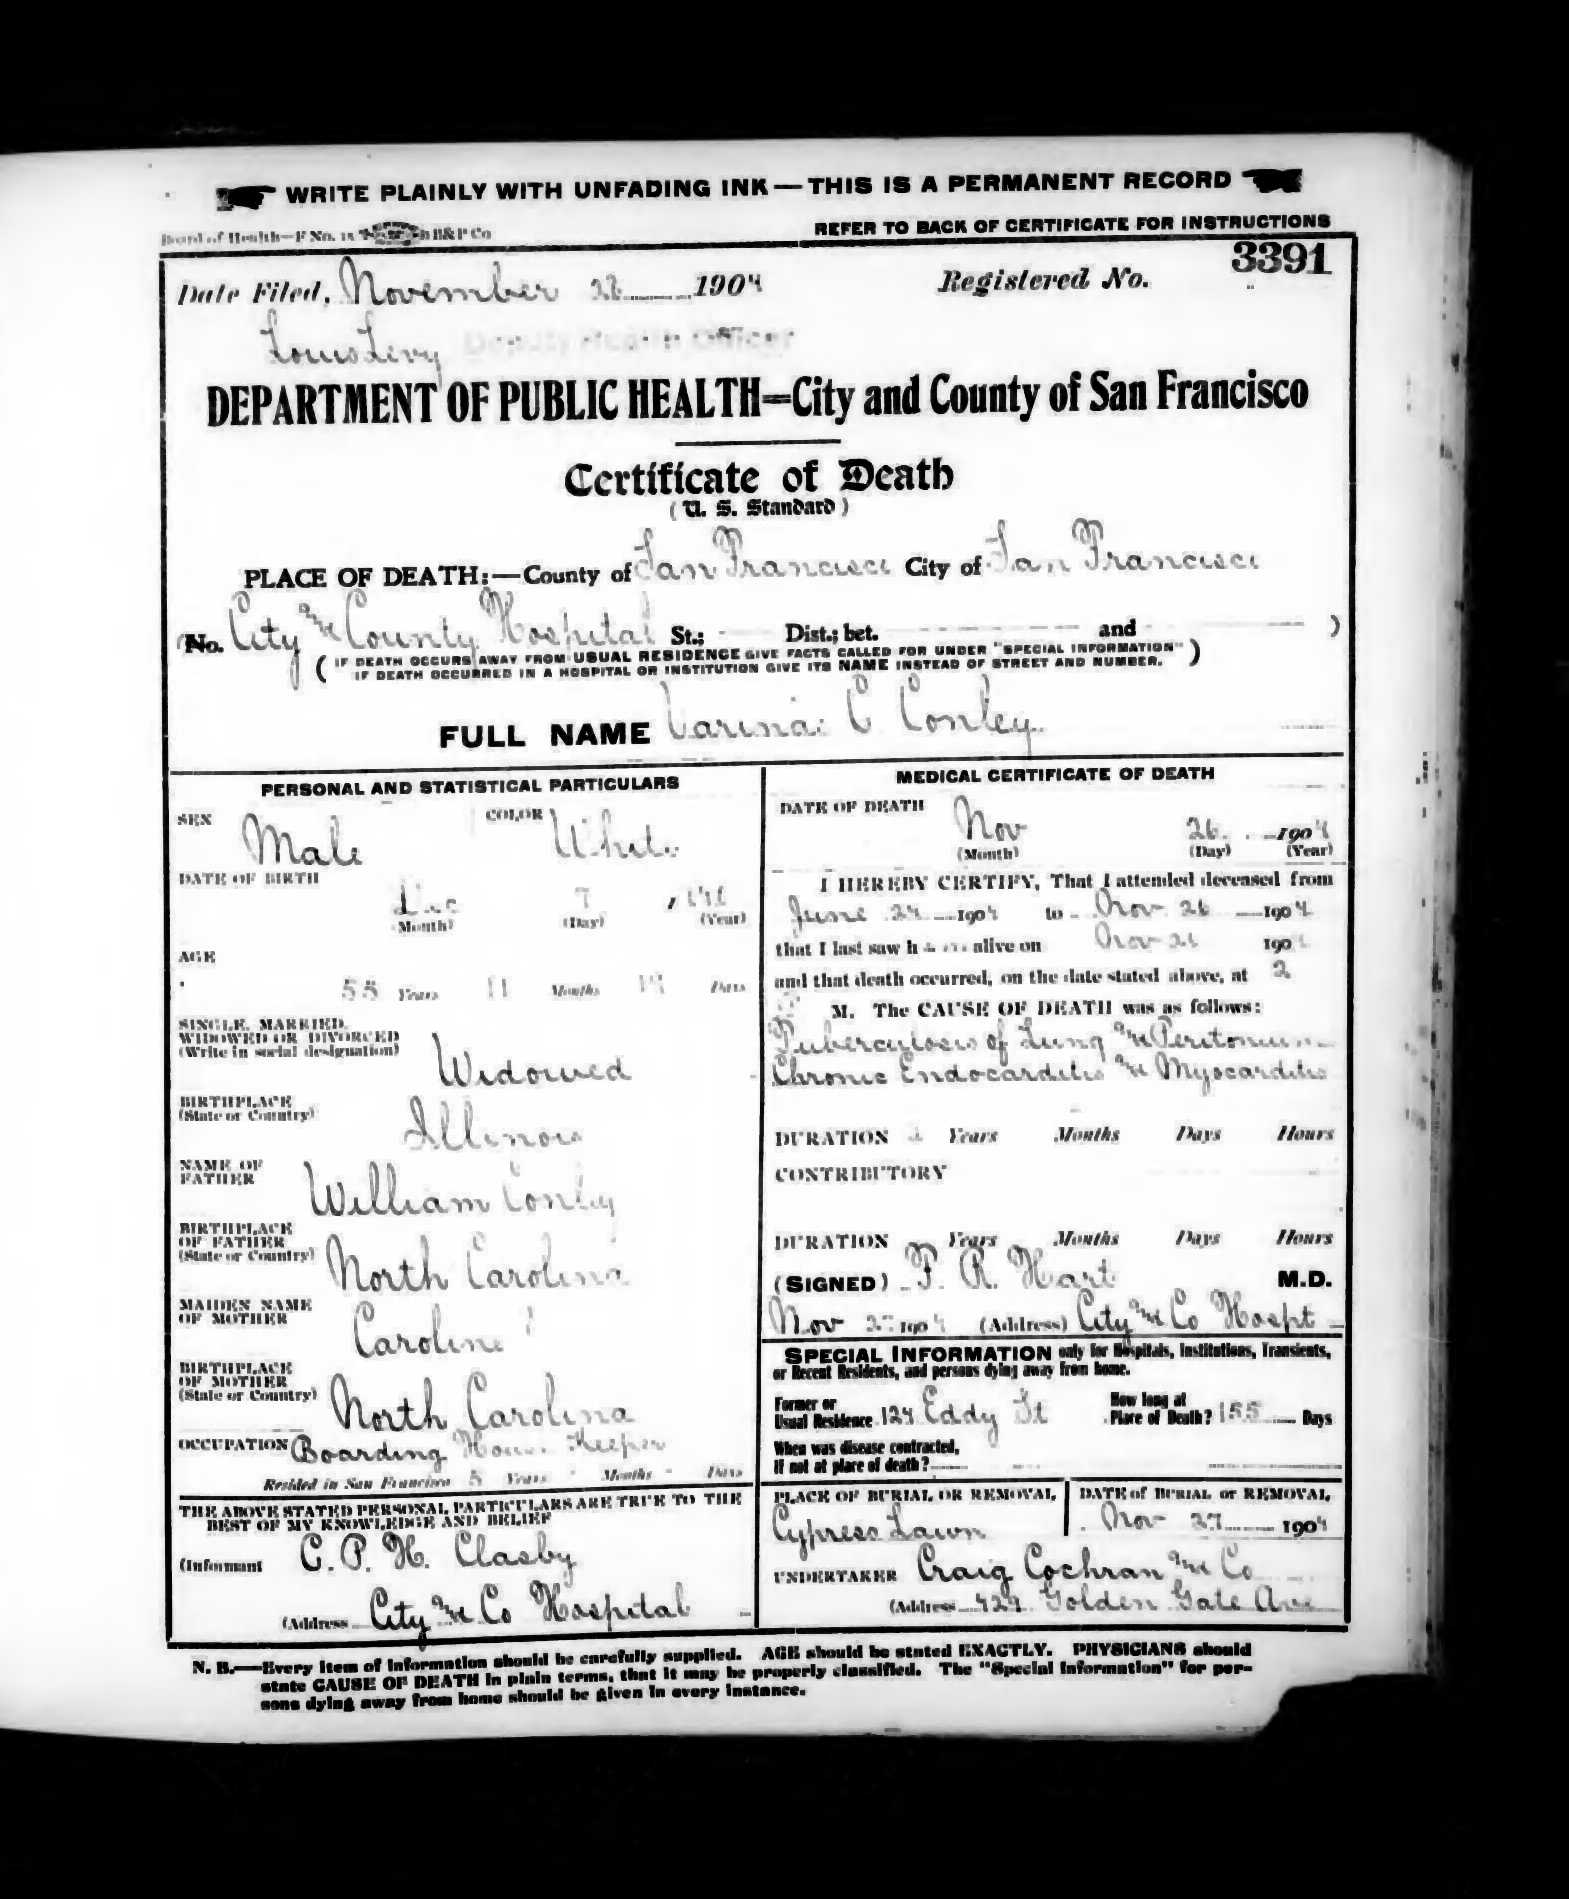 WRITE PLAINLY WITH UNFADING INK — THIS IS A PERMANENT RECORD
Board of Health—F No. 15 B&P Co
REFER TO BACK OF CERTIFICATE FOR INSTRUCTIONS
Date Filed, November 28 1904 Registered No. 3391
Louis Levy Deputy Health Officer
DEPARTMENT OF PUBLIC HEALTH=City and County of San Francisco
Certificate of Death
(U. S. Standard)
PLACE OF DEATH:—County of San Francisco City of San Francisco
(No. City and County Hospital St.; Dist.; bet. and )
(IF DEATH OCCURS AWAY FROM USUAL RESIDENCE GIVE FACTS CALLED FOR UNDER "SPECIAL INFORMATION"
IF DEATH OCCURRED IN A HOSPITAL OR INSTITUTION GIVE ITS NAME INSTEAD OF STREET AND NUMBER.)
FULL NAME Varina C Conley
PERSONAL AND STATISTICAL PARTICULARS
SEX Male COLOR White
DATE OF BIRTH Dec 7
(Month) (Day) (Year)
AGE
55 Years 11 Months Days
SINGLE, MARRIED,
WIDOWED OR DIVORCED
(Write in social designation) Widowed
BIRTHPLACE
(State or Country) Illinois
NAME OF
FATHER William Conley
BIRTHPLACE
OF FATHER
(State or Country) North Carolina
MAIDEN NAME
OF MOTHER Caroline
BIRTHPLACE
OF MOTHER
(State or Country) North Carolina
OCCUPATION Boarding House Keeper
Resided in San Francisco 5 Years - Months - Days
THE ABOVE STATED PERSONAL PARTICULARS ARE TRUE TO THE
BEST OF MY KNOWLEDGE AND BELIEF
(Informant C. P. H. Clasby
(Address City and Co Hospital
MEDICAL CERTIFICATE OF DEATH
DATE OF DEATH Nov 26 1904
(Month) (Day) (Year)
I HEREBY CERTIFY, That I attended deceased from
June 24 1904 to Nov 26 1904
that I last saw h alive on Nov 26 190
and that death occurred, on the date stated above, at 2
M. The CAUSE OF DEATH was as follows:
Tuberculosis of Lung and Peritoneum
Chronic Endocarditis and Myocarditis
DURATION Years Months Days Hours
CONTRIBUTORY
DURATION Years Months Days Hours
(SIGNED) F. R. Hart M.D.
Nov 27 1904 (Address) City and Co Hospt
SPECIAL INFORMATION only for Hospitals, Institutions, Transients,
or Recent Residents, and persons dying away from home.
Former or
Usual Residence 124 Eddy St How long at
Place of Death? 155 Days
When was disease contracted,
If not at place of death?
PLACE OF BURIAL OR REMOVAL DATE of BURIAL or REMOVAL
Cypress Lawn Nov 27 1904
UNDERTAKER Craig Cochran and Co
(Address 429 Golden Gate Ave
N. B.—Every item of information should be carefully supplied. AGE should be stated EXACTLY. PHYSICIANS should
state CAUSE OF DEATH in plain terms, that it may be properly classified. The "Special Information" for per-
sons dying away from home should be given in every instance.